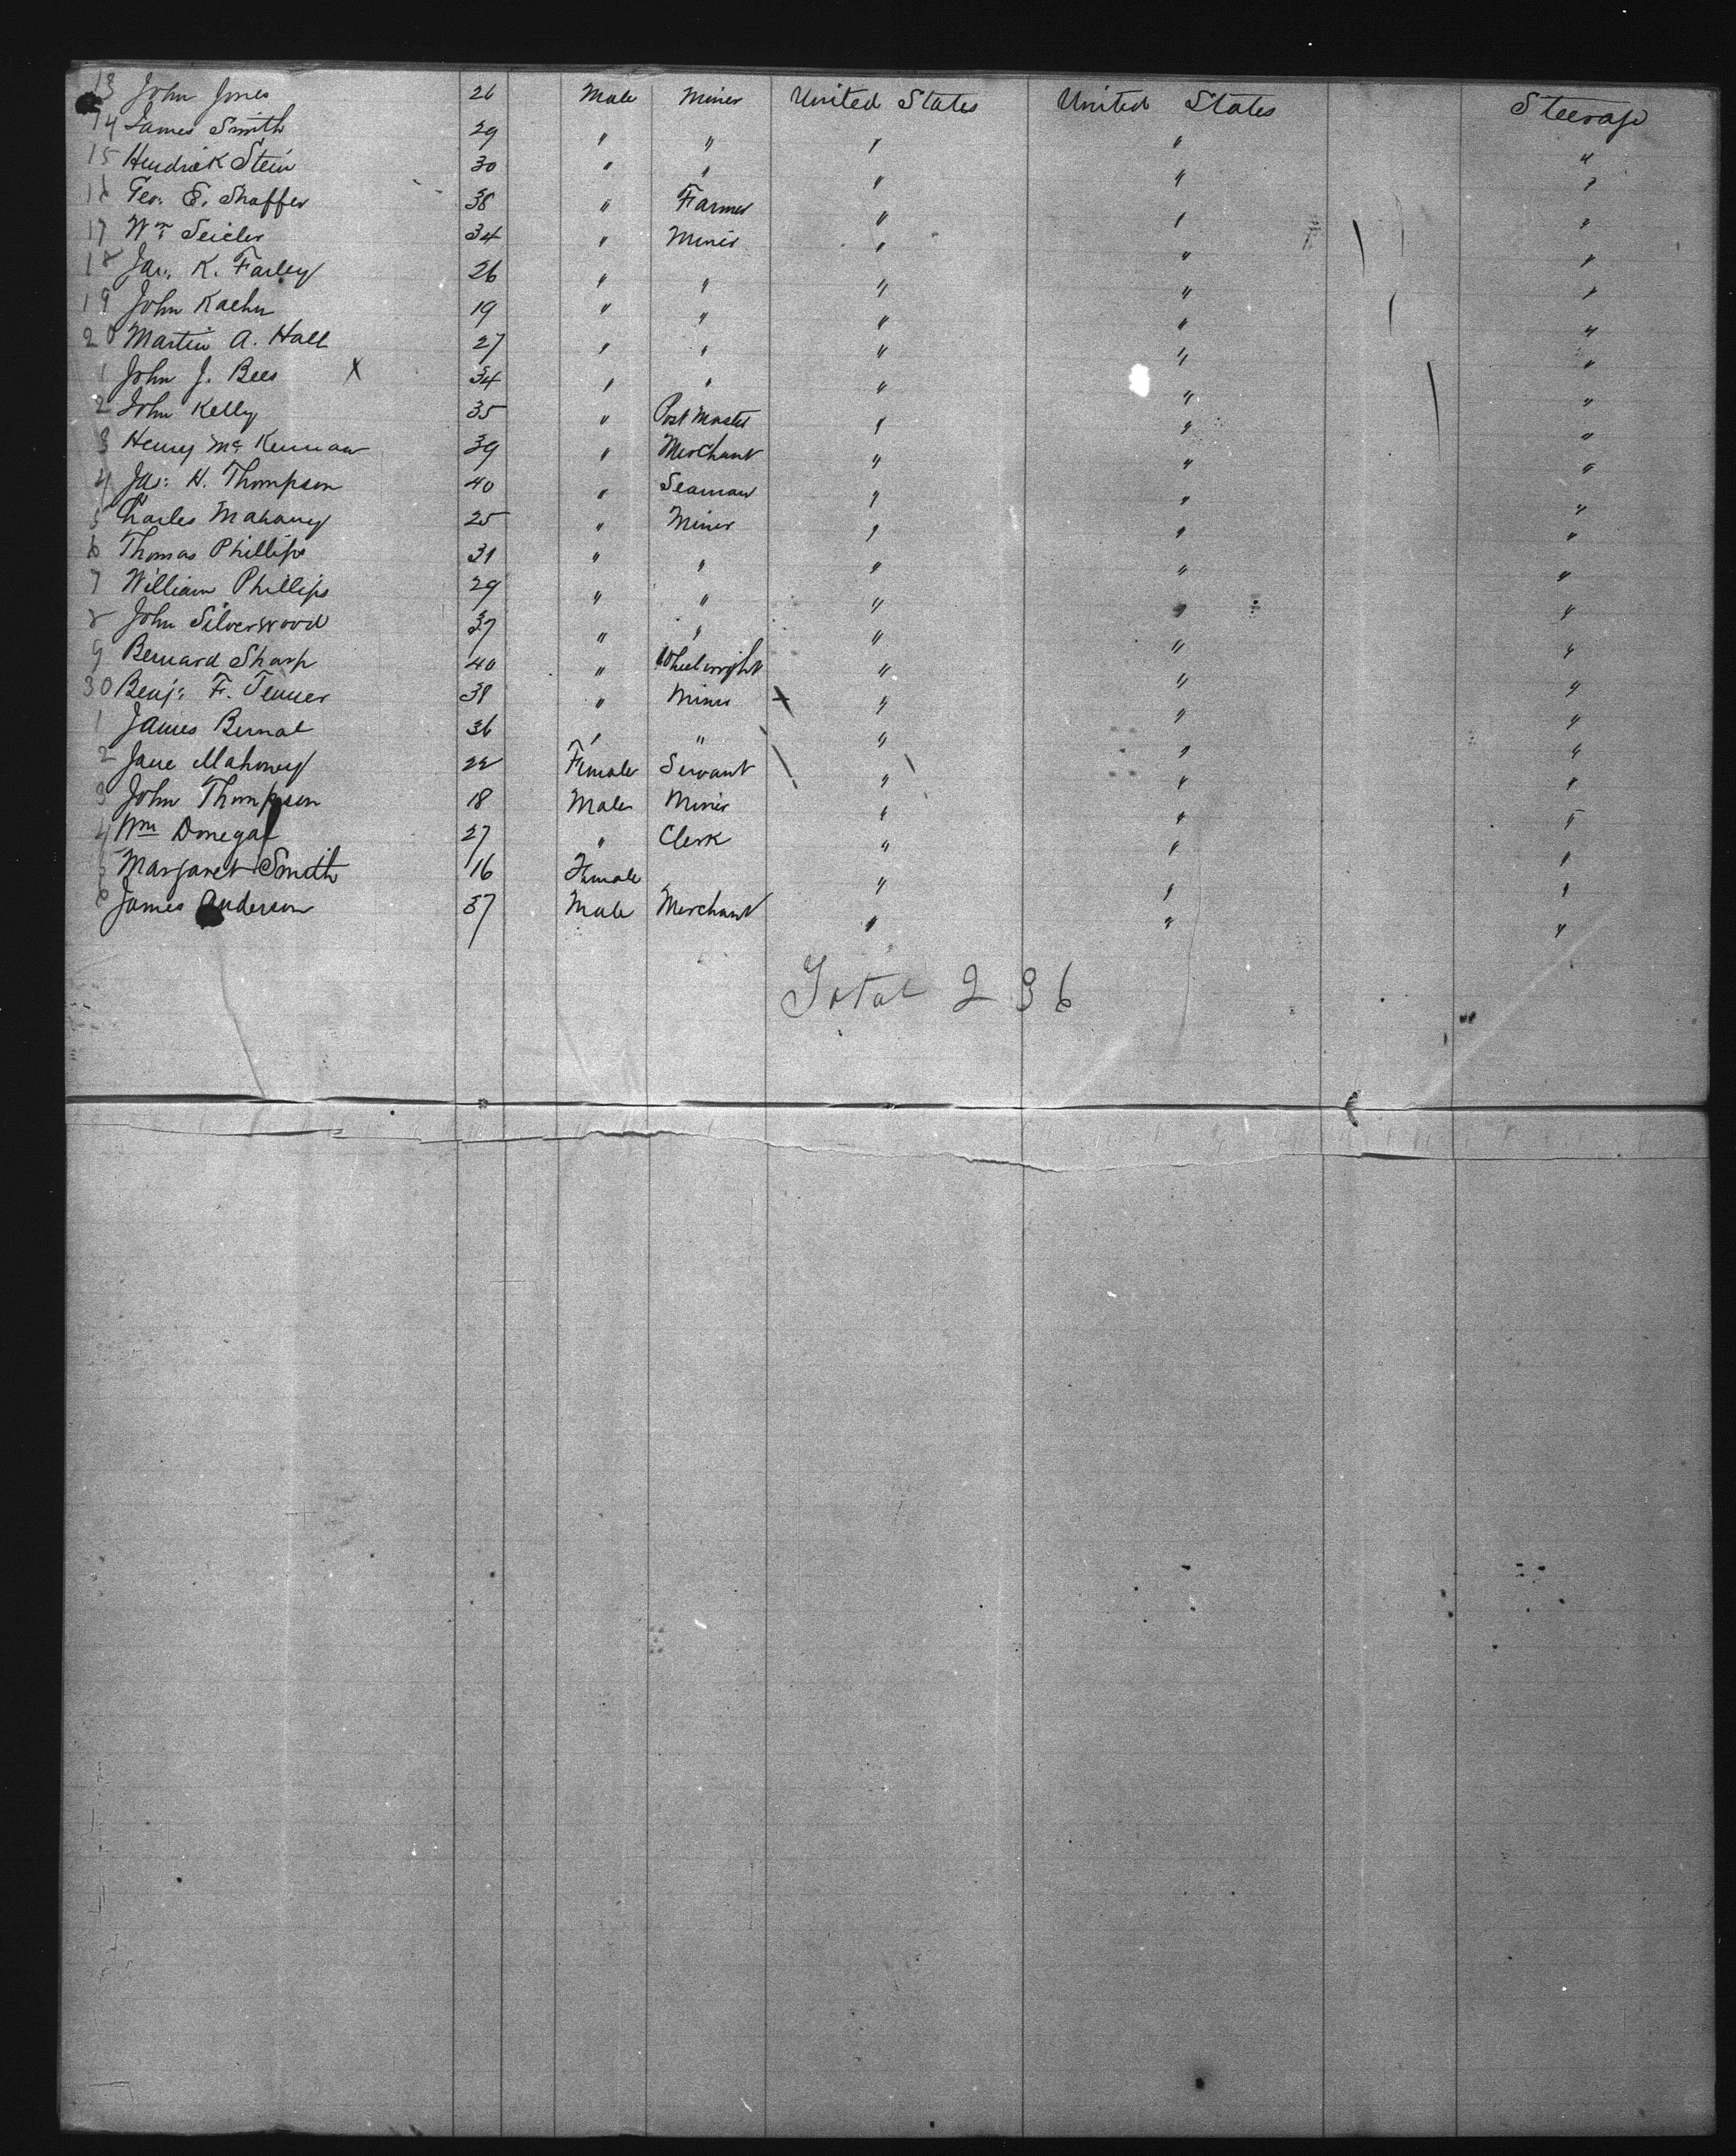 13 John Jones 26 Male Miner United States United States Steerage
14 James Smith 29 " " " " "
15 Hendrick Stein 30 " " " " "
16 Geo. E. Shaffer 38 " Farmer " " "
17 Wm Seicler 34 " Miner " " "
18 Jas. K. Farley 26 " " " " "
19 John Kaehn 19 " " " " "
20 Martin A. Hall 27 " " " " "
1 John J. Bees X 34 " " " " "
2 John Kelly 35 " Post Master " " "
3 Henry Mc Kernan 39 " Merchant " " "
4 Jas: H. Thompson 40 " Seaman " " "
5 Charles Mahaney 25 " Miner " " "
6 Thomas Phillips 31 " " " " "
7 William Phillips 29 " " " " "
8 John Silverwood 37 " " " " "
9 Bernard Sharp 40 " Wheelwright " " "
30 Benj: F. Tenner 38 " Miner X " " "
1 James Bernal 36 " " " " "
2 Jane Mahoney 22 Female Servant " " "
3 John Thompson 18 Male Miner " " "
4 Wm Donegal 27 " Clerk " " "
5 Margaret Smith 16 Female " " "
6 James Anderson 37 Male Merchant " " "
Total 236